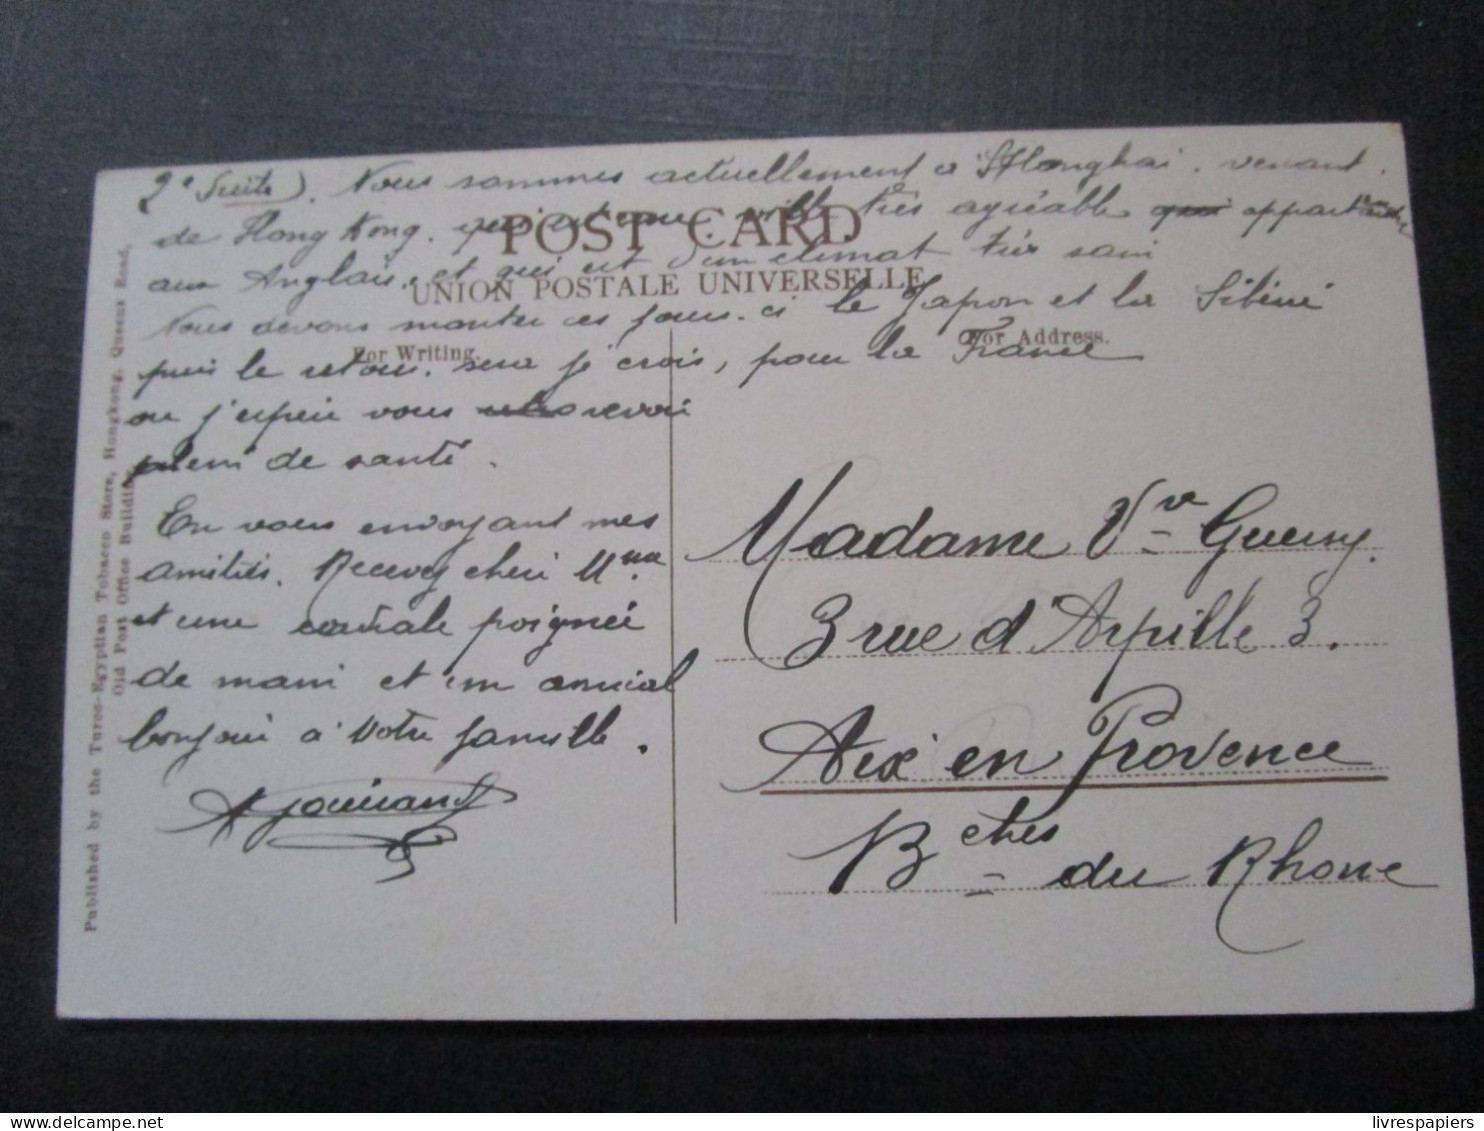 2e Suite). Nous sommes actuellement a SHanghai. venant
de Hong Kong. qui est une ville très agréable appartenant
aux Anglais, et qui est d'un climat très sain
Nous devons monter ces jours. ci le Japon et la Sibérie
puis le retour sera je crois, pour la France
ou j'espère vous revoir
plein de santé.
En vous envoyant mes
amitiés. Recevez chère Mme
et une cordiale poignée
de main et un amical
bonjour à votre famille.
POST CARD
UNION POSTALE UNIVERSELLE
For Writing.
For Address.
Madame Vve
3 rue d'Arpille 3.
Aix en Provence
Bches du Rhone
Published by the Turco-Egyptian Tobacco Store, Hongkong, Queens Road,
Old Post Office Building.
livrespapiers